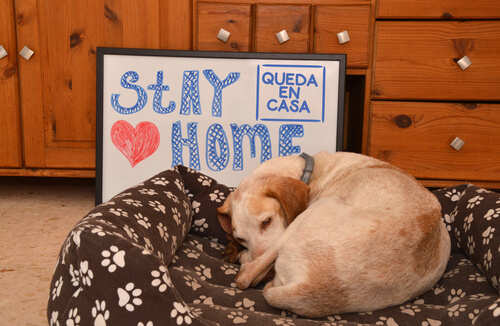 StAY
HOME
QUEDA
EN
CASA